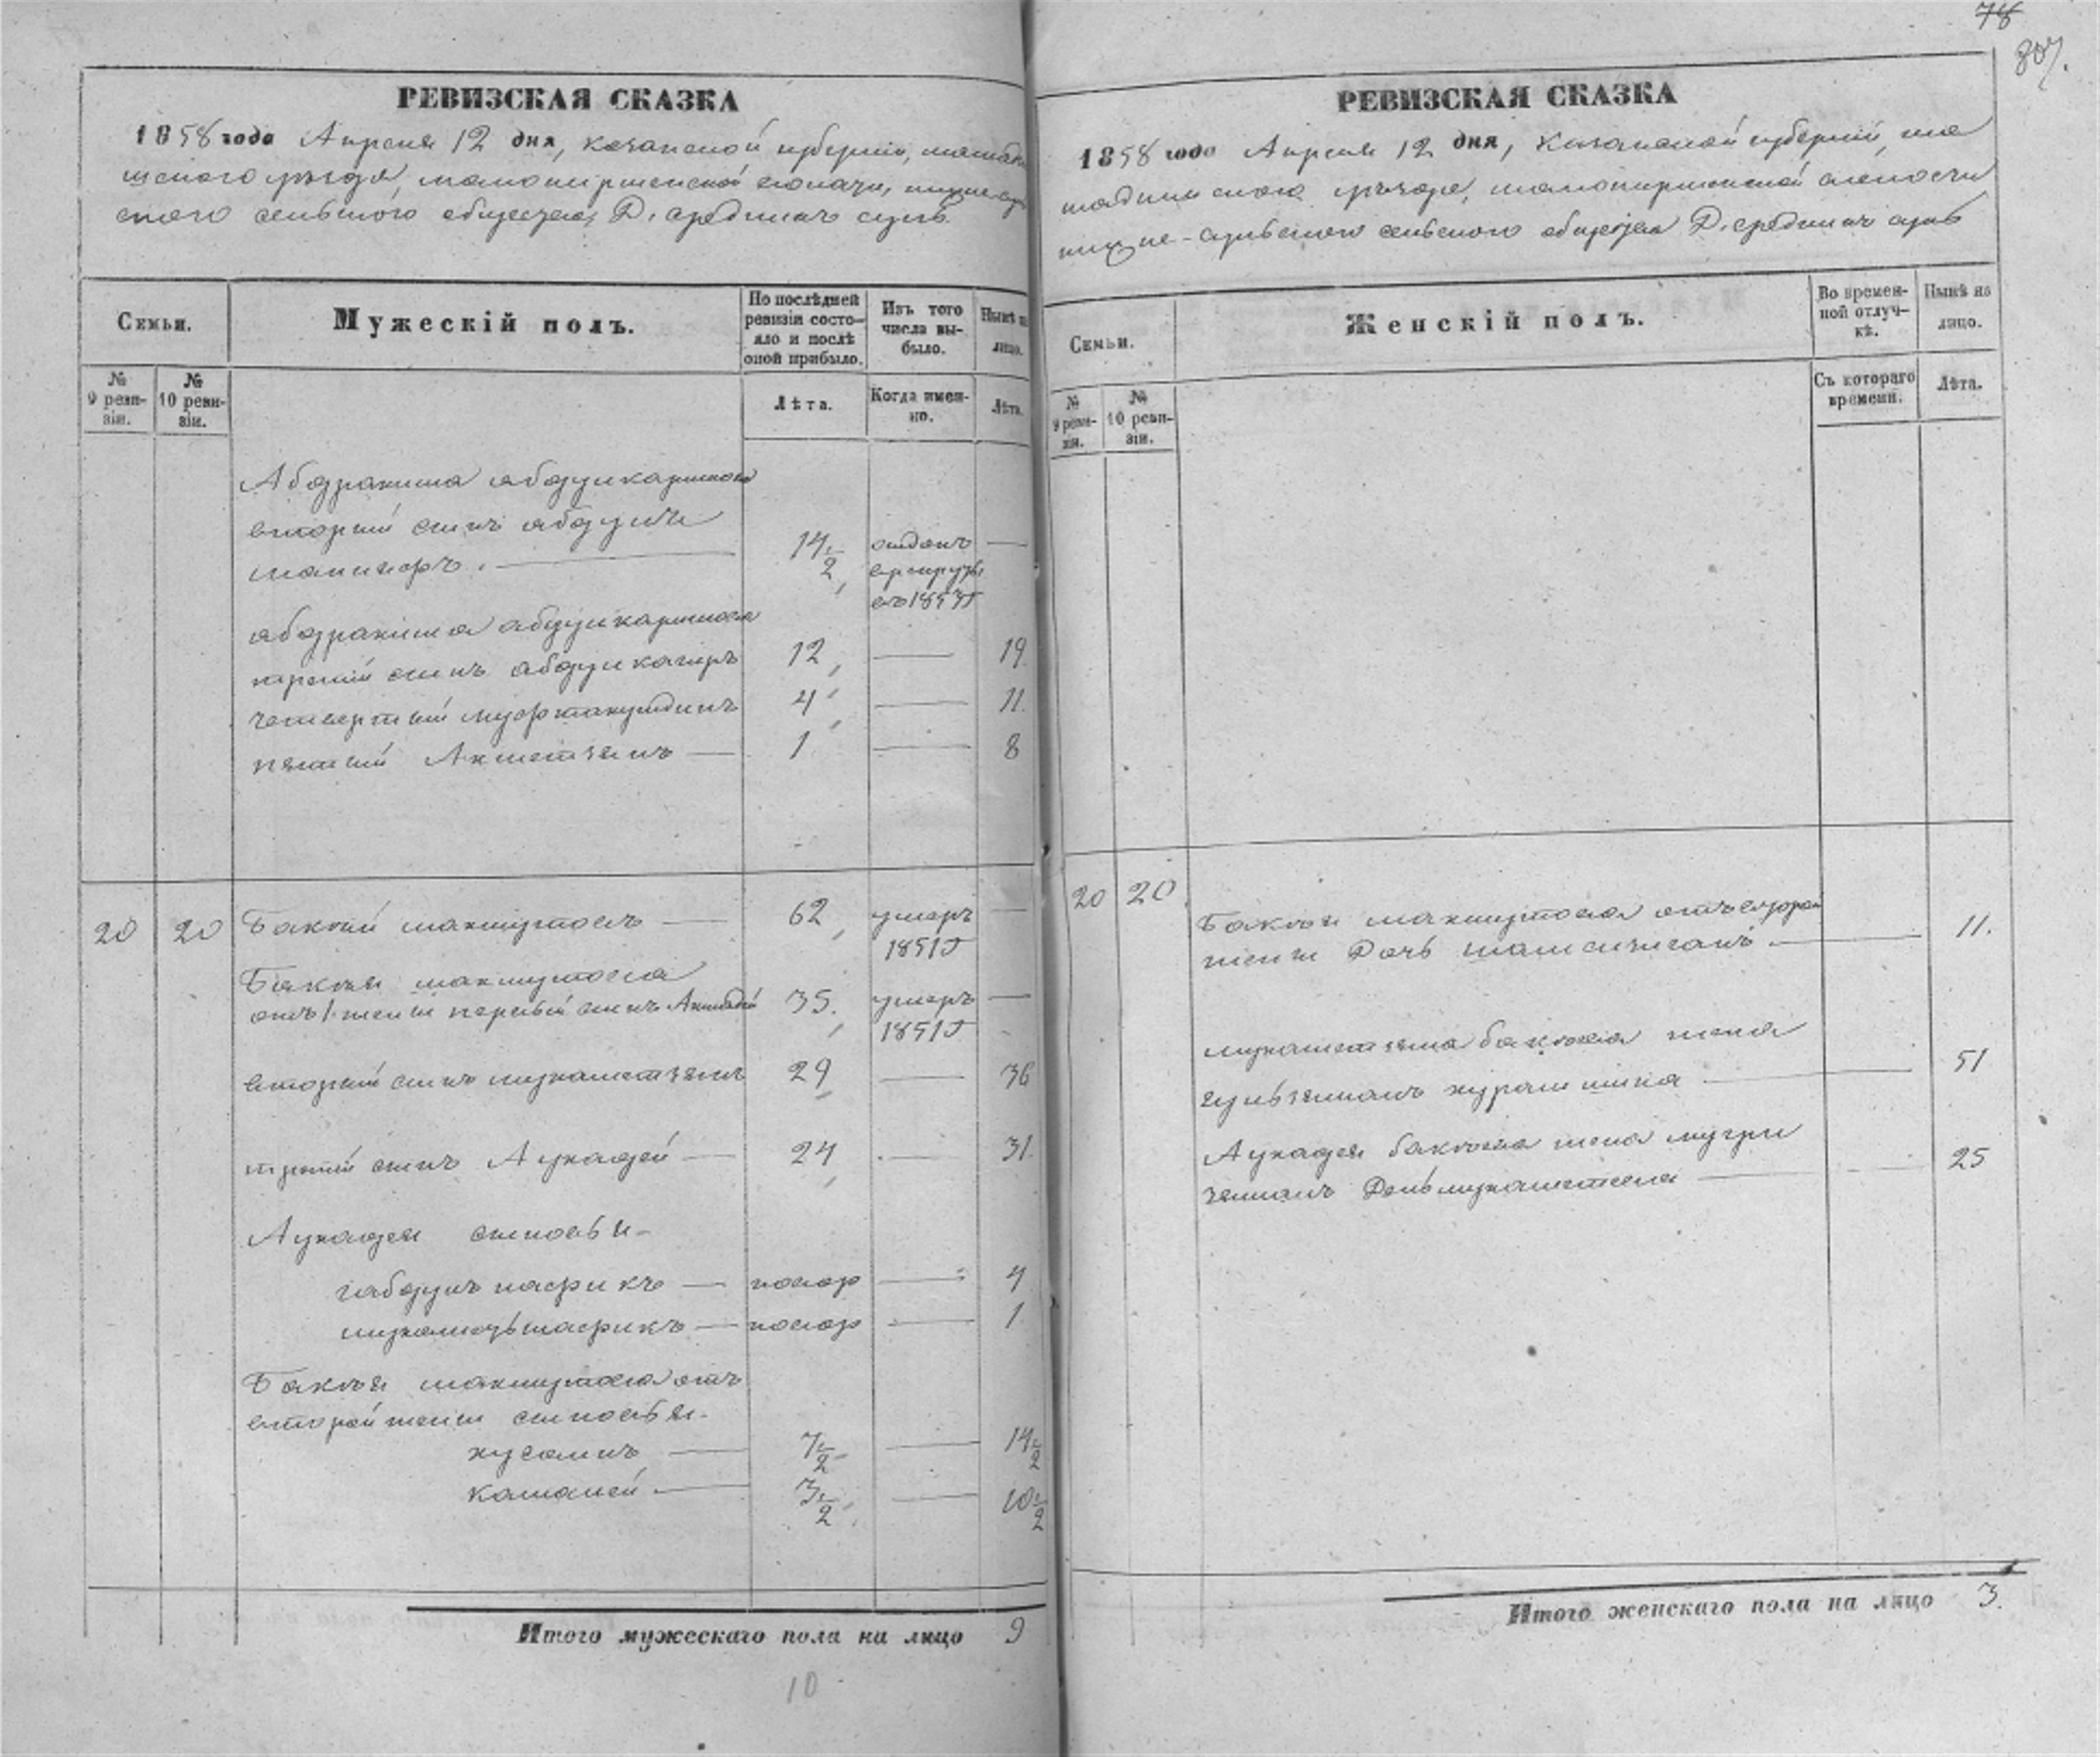 78
807.
РЕВИЗСКАЯ СКАЗКА
1858 года Апреля 12 дня, казанской губернии, мамады
шского уезда,
ского сельского общества, Д. средних сунь
Семьи.
Мужескій полъ.
По послѣдней ревизіи состо-
яло и послѣ
оной прибыло.
Изъ того
числа вы-
было.
Нынѣ на
лицо.
№
9 реви-
зіи.
№
10 реви-
зіи.
Лѣта.
Когда имен-
но.
Лѣта.
Абдрахима абдулкаримова
вторый сынъ абдулъ
14 1/2 отданъ —
в рекруты
въ 1853 г
абдрахима абдулкаримова
третий сынъ абдулкагиръ 12 — 19.
четвертый 4 — 11.
пятый Ахметзянъ — 1 — 8
20 20 Бакый махмутовъ — 62 умеръ —
1851 г
Бакыя махмутова
отъ 1 жены первый сынъ 35. умеръ —
1851 г
вторый сынъ мухаметзянъ 29 — 36
третий сынъ — 24 — 31.
сыновья
габдулъ — новор — 4
— новор — 1
Бакыя махмутова отъ
второй жены сыновья
хусаинъ — 7 1/2 — 14 1/2
камалей — 3 1/2 — 10 1/2
Итого мужескаго пола на лицо 9
10
РЕВИЗСКАЯ СКАЗКА
1858 года Апреля 12 дня, казанской губернии, ма
мадышского уезда, волости
нижне-сунского сельского общества Д. средних сунь
Семьи.
Женскій полъ.
Во времен-
ной отлуч-
кѣ.
Нынѣ на
лицо.
№
9 реви-
зіи.
№
10 реви-
зіи.
Съ котораго
времени.
Лѣта.
20 20 Бакыя махмутова отъ второй
жены Дочь — 11.
мухаметзяна бакыева жена
— 51
бакыева жена
— 25
Итого женскаго пола на лицо 3.